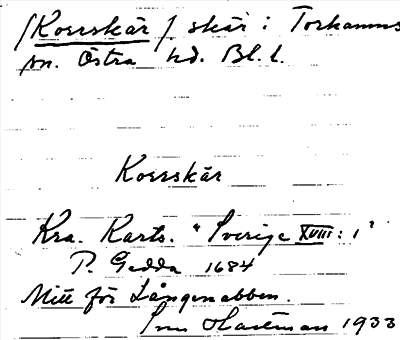 [Koerskär] skär i Torhamns
sn. Östra hd. Bl. l.
Koerskär
Kra. Karts. "Sverige XVIII: 1"
P. Gedda 1684
Mitt för Långenabben.
Sven Hartman 1933